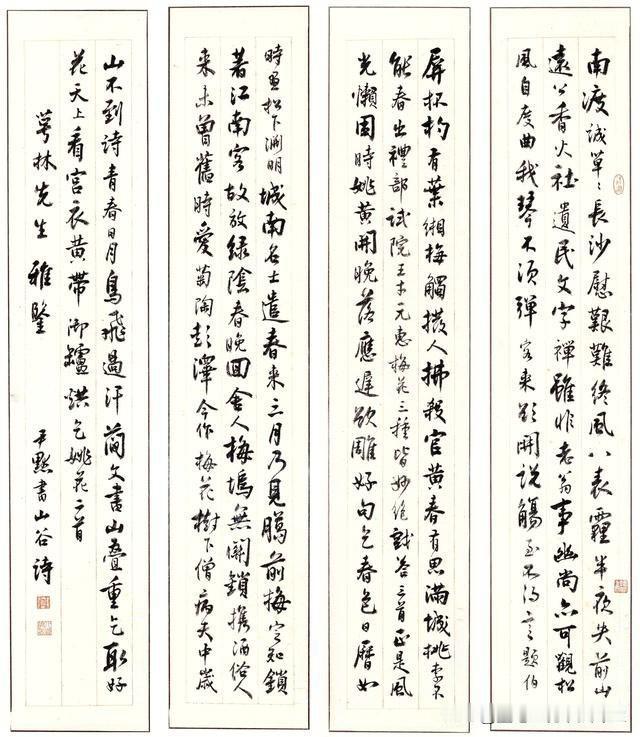 南渡誠草〻長沙慰艱難終風八表霾半夜失前山
遠公香火社遺民文字禪雖非老翁事幽尚亦可觀松
風自度曲我琴不須彈客來欲開說觴至不得言題伯
屏杯杓有葉緗梅觸撥人拂殺官黃春有思滿城桃李不
能春出禮部試院王才元惠梅花三種皆妙絕戲答三首正是風
光懶困時姚黃開晚落應遲欲雕好句乞春色日曆如
時畫松下淵明城南名士遣春來三月乃見臘前梅定知鎖
著江南客故放綠陰春晚回舍人梅塢無關鎖攜酒俗人
來未曾舊時愛菊陶彭澤今作梅花樹下僧病夫中歲
山不到詩青春日月鳥飛過汗簡文書山疊重乞取好
花天上看宮衣黃帶御爐烘乞姚花二首
萼林先生雅鑒 尹默書山谷詩